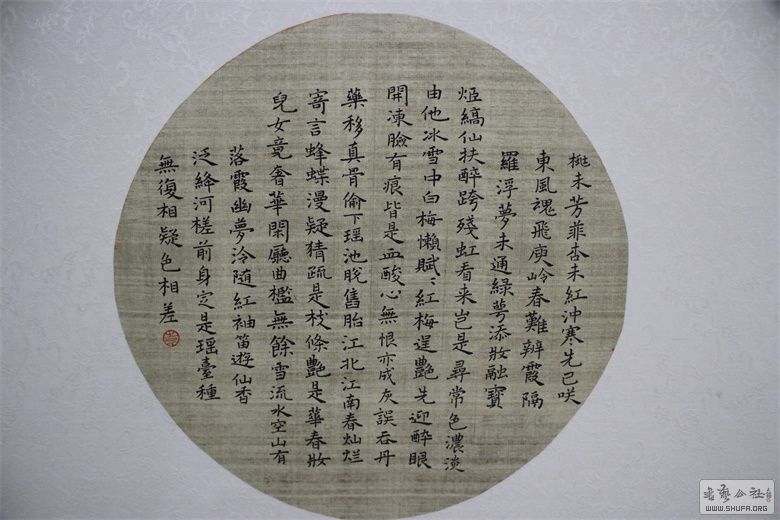 桃未芳菲杏未紅沖寒先已咲
東風魂飛庾岭春難辨霞隔
羅浮夢未通綠萼添妝融寶
炬縞仙扶醉跨殘虹看来岂是尋常色濃淡
由他冰雪中白梅懶賦〻紅梅逞艷先迎醉眼
開凍臉有痕皆是血酸心無恨亦成灰誤吞丹
藥移真骨偷下瑶池脫舊胎江北江南春灿烂
寄言蜂蝶漫疑猜疏是枝條艷是華春妝
兒女竟奢華閑廳曲檻無餘雪流水空山有
落霞幽夢冷隨紅袖笛遊仙香
泛絳河槎前身定是瑶臺種
無復相疑色相差
书艺公社
WWW.SHUFA.ORG